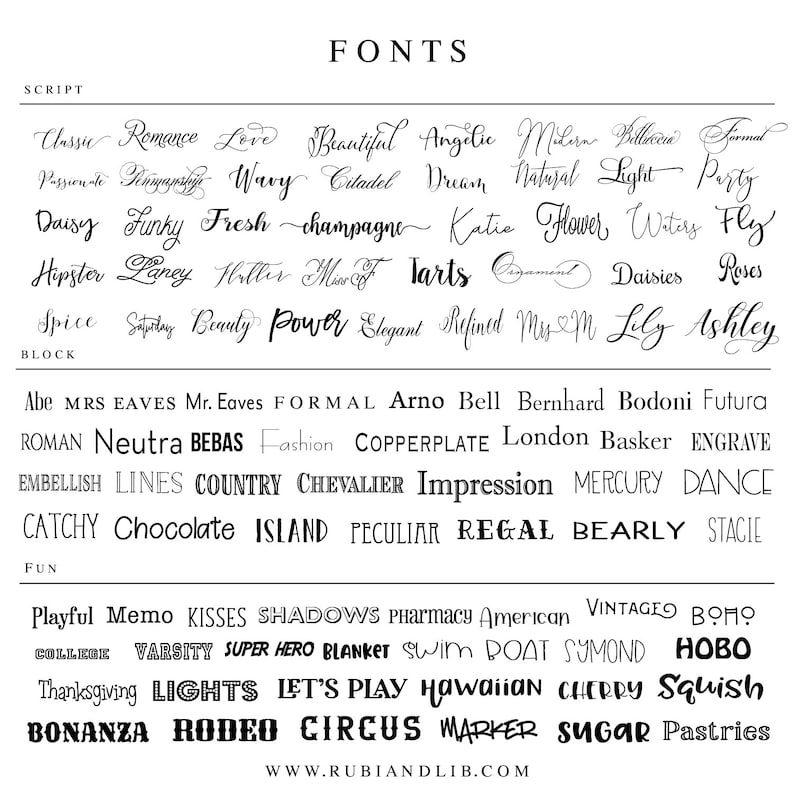 FONTS
SCRIPT
Classic Romance Love Beautiful Angelic Modern Belluccia Formal
Passionate Penmanship Wavy Citadel Dream Natural Light Party
Daisy Funky Fresh champagne Katie Flower Waters Fly
Hipster Laney Flutter Miss F Tarts Ornament Daisies Roses
Spice Saturday Beauty Power Elegant Refined Mrs M Lily Ashley
BLOCK
Abc MRS EAVES Mr. Eaves FORMAL Arno Bell Bernhard Bodoni Futura
ROMAN Neutra BEBAS Fashion COPPERPLATE London Basker ENGRAVE
EMBELLISH LINES COUNTRY CHEVALIER Impression MERCURY DANCE
CATCHY Chocolate ISLAND PECULIAR REGAL BEARLY STACIE
FUN
Playful Memo KISSES SHADOWS PHARMACY American VINTAGE BOHO
COLLEGE VARSITY SUPER HERO BLANKET swim BOAT SYMOND HOBO
Thanksgiving LIGHTS LET'S PLAY HAWAIIAN CHERRY Squish
BONANZA RODEO CIRCUS MARKER SUGAR Pastries
WWW.RUBIANDLIB.COM